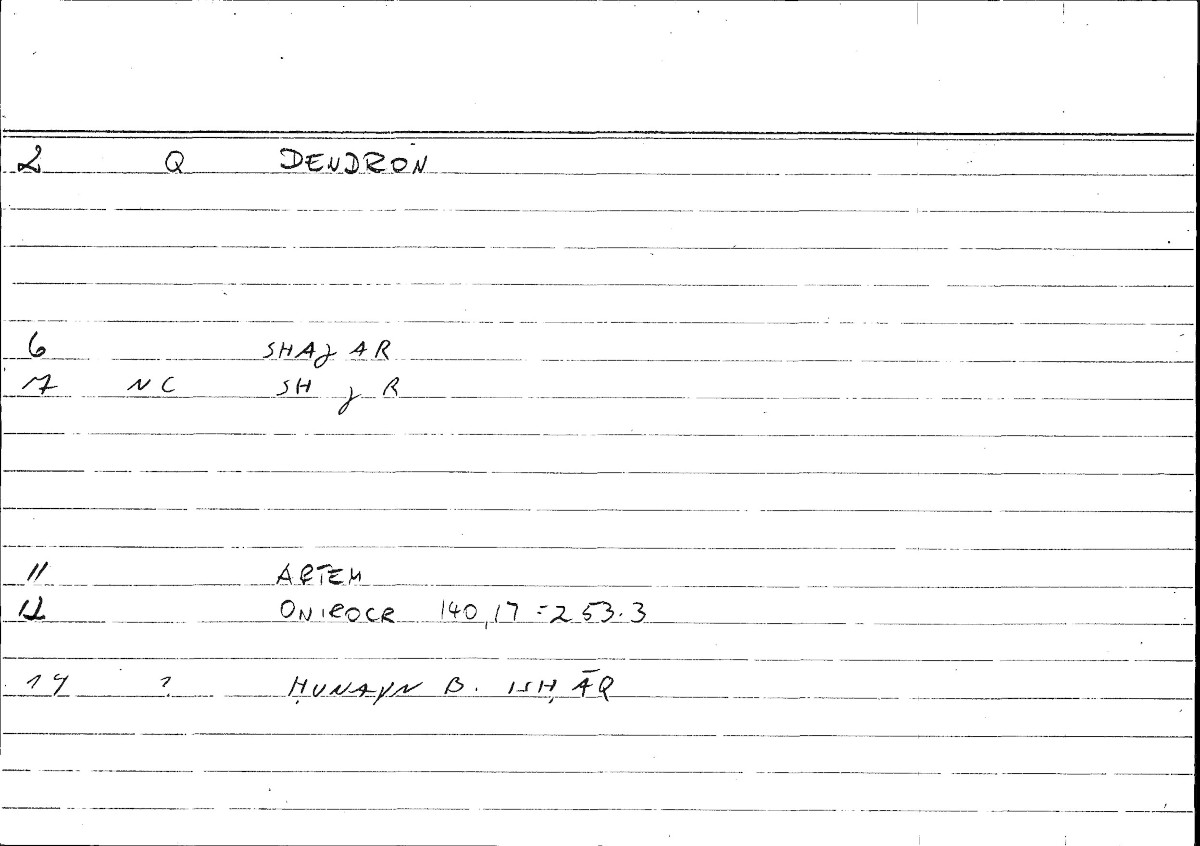 2 Q DENDRON
6 SHAJ AR
7 NC SH J R
11 ARTEM
12 ONIROCR 140,17 = 253.3
14 ? ḤUNAYN B. ISḤĀQ